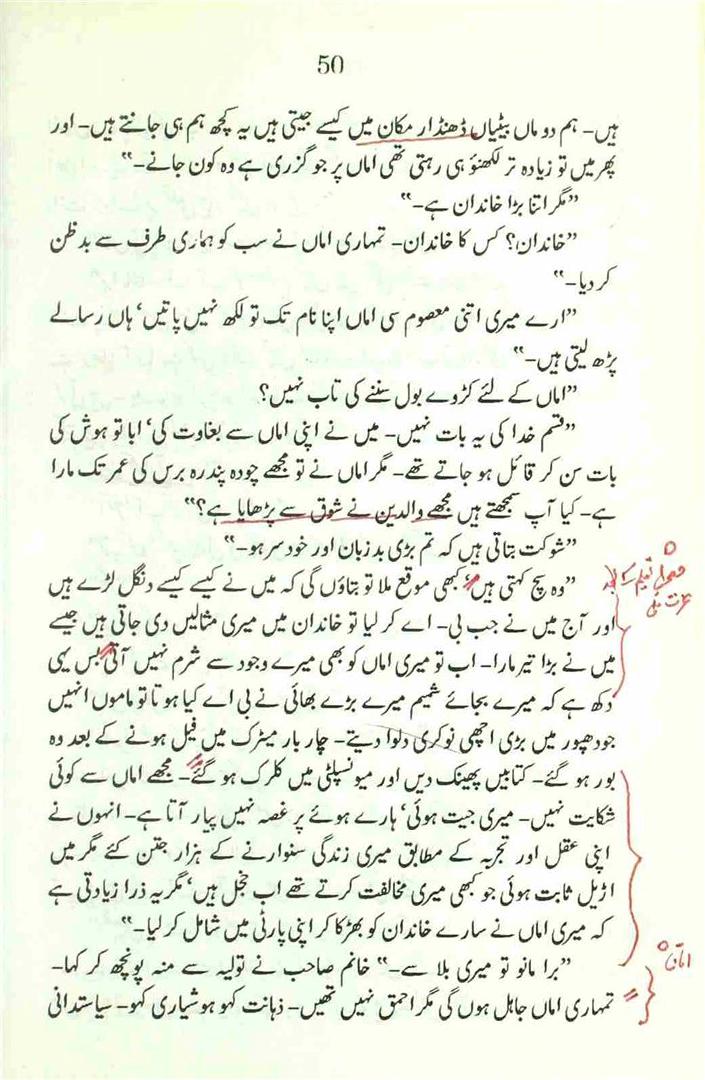 50
ہیں۔ ہم دو ماں بیٹیاں ڈھنڈار مکان میں کیسے جیتی ہیں یہ کچھ ہم ہی جانتے ہیں۔ اور
پھر میں تو زیادہ تر لکھنؤ ہی رہتی تھی اماں پر جو گزری ہے وہ کون جانے۔"
"مگر اتنا بڑا خاندان ہے۔"
"خاندان؟ کس کا خاندان۔ تمہاری اماں نے سب کو ہماری طرف سے بد ظن
کر دیا۔"
"ارے میری اتنی معصوم سی اماں اپنا نام تک تو لکھ نہیں پاتیں' ہاں رسالے
پڑھ لیتی ہیں۔"
"اماں کے لئے کڑوے بول سننے کی تاب نہیں؟
"قسم خدا کی یہ بات نہیں۔ میں نے اپنی اماں سے بغاوت کی' ابا تو ہوش کی
بات سن کر قائل ہو جاتے تھے۔ مگر اماں نے تو مجھے چودہ پندرہ برس کی عمر تک مارا
ہے۔ کیا آپ سمجھتے ہیں مجھے والدین نے شوق سے پڑھایا ہے؟"
"شوکت بتاتی ہیں کہ تم بڑی بد زبان اور خود سر ہو۔"
"وہ سچ کہتی ہیں' کبھی موقع ملا تو بتاؤں گی کہ میں نے کیسے کیسے دنگل لڑے ہیں
اور آج میں نے جب بی۔ اے کر لیا تو خاندان میں میری مثالیں دی جاتی ہیں جیسے
میں نے بڑا تیر مارا۔ اب تو میری اماں کو بھی میرے وجود سے شرم نہیں آتی بس یہی
دکھ ہے کہ میرے بجائے شمیم میرے بڑے بھائی نے بی اے کیا ہوتا تو ماموں انہیں
جودھپور میں بڑی اچھی نوکری دلوا دیتے۔ چار بار میٹرک میں فیل ہونے کے بعد وہ
بور ہو گئے۔ کتابیں پھینک دیں اور میونسپلٹی میں کلرک ہو گئے۔ مجھے اماں سے کوئی
شکایت نہیں۔ میری جیت ہوئی' ہارے ہوئے پر غصہ نہیں پیار آتا ہے۔ انہوں نے
اپنی عقل اور تجربہ کے مطابق میری زندگی سنوارنے کے ہزار جتن کئے مگر میں
اڑیل ثابت ہوئی جو کبھی میری مخالفت کرتے تھے اب خجل ہیں' مگر یہ ذرا زیادتی ہے
کہ میری اماں نے سارے خاندان کو بھڑکا کر اپنی پارٹی میں شامل کر لیا۔"
"برا مانو تو میری بلا سے۔" خانم صاحب نے تولیہ سے منہ پونچھ کر کہا۔
تمہاری اماں جاہل ہوں گی مگر احمق نہیں تھیں۔ ذہانت کہو ہوشیاری کہو۔ سیاستدانی